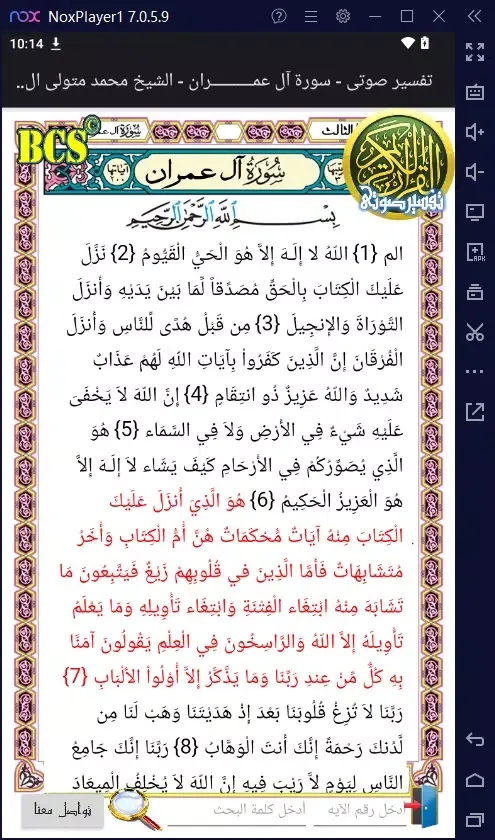 NoxPlayer1 7.0.5.9
10:14
تفسير صوتى - سورة آل عمـــــــــران - الشيخ محمد متولى ال..
BCS
©
الثالث
سُورَةُ آل عمران
القرآن الكريم
تفسير صوتى
بِسْمِ اللَّهِ الرَّحْمَنِ الرَّحِيمِ
الم {1} اللّهُ لا إِلَـهَ إِلاَّ هُوَ الْحَيُّ الْقَيُّومُ {2} نَزَّلَ
عَلَيْكَ الْكِتَابَ بِالْحَقِّ مُصَدِّقاً لِّمَا بَيْنَ يَدَيْهِ وَأَنزَلَ
التَّوْرَاةَ وَالإِنجِيلَ {3} مِن قَبْلُ هُدًى لِّلنَّاسِ وَأَنزَلَ
الْفُرْقَانَ إِنَّ الَّذِينَ كَفَرُواْ بِآيَاتِ اللّهِ لَهُمْ عَذَابٌ
شَدِيدٌ وَاللّهُ عَزِيزٌ ذُو انتِقَامٍ {4} إِنَّ اللّهَ لاَ يَخْفَىَ
عَلَيْهِ شَيْءٌ فِي الأَرْضِ وَلاَ فِي السَّمَاء {5} هُوَ
الَّذِي يُصَوِّرُكُمْ فِي الأَرْحَامِ كَيْفَ يَشَاء لاَ إِلَـهَ إِلاَّ
هُوَ الْعَزِيزُ الْحَكِيمُ {6} هُوَ الَّذِيَ أَنزَلَ عَلَيْكَ
الْكِتَابَ مِنْهُ آيَاتٌ مُّحْكَمَاتٌ هُنَّ أُمُّ الْكِتَابِ وَأُخَرُ
مُتَشَابِهَاتٌ فَأَمَّا الَّذِينَ في قُلُوبِهِمْ زَيْغٌ فَيَتَّبِعُونَ مَا
تَشَابَهَ مِنْهُ ابْتِغَاء الْفِتْنَةِ وَابْتِغَاء تَأْوِيلِهِ وَمَا يَعْلَمُ
تَأْوِيلَهُ إِلاَّ اللّهُ وَالرَّاسِخُونَ فِي الْعِلْمِ يَقُولُونَ آمَنَّا
بِهِ كُلٌّ مِّنْ عِندِ رَبِّنَا وَمَا يَذَّكَّرُ إِلاَّ أُوْلُواْ الألْبَابِ {7}
رَبَّنَا لاَ تُزِغْ قُلُوبَنَا بَعْدَ إِذْ هَدَيْتَنَا وَهَبْ لَنَا مِن
لَّدُنكَ رَحْمَةً إِنَّكَ أَنتَ الْوَهَّابُ {8} رَبَّنَا إِنَّكَ جَامِعُ
النَّاسِ لِيَوْمٍ لاَّ رَيْبَ فِيهِ إِنَّ اللّهَ لاَ يُخْلِفُ الْمِيعَادَ
أدخل رقم الآيه
أدخل كلمة البحث
تواصل معنا